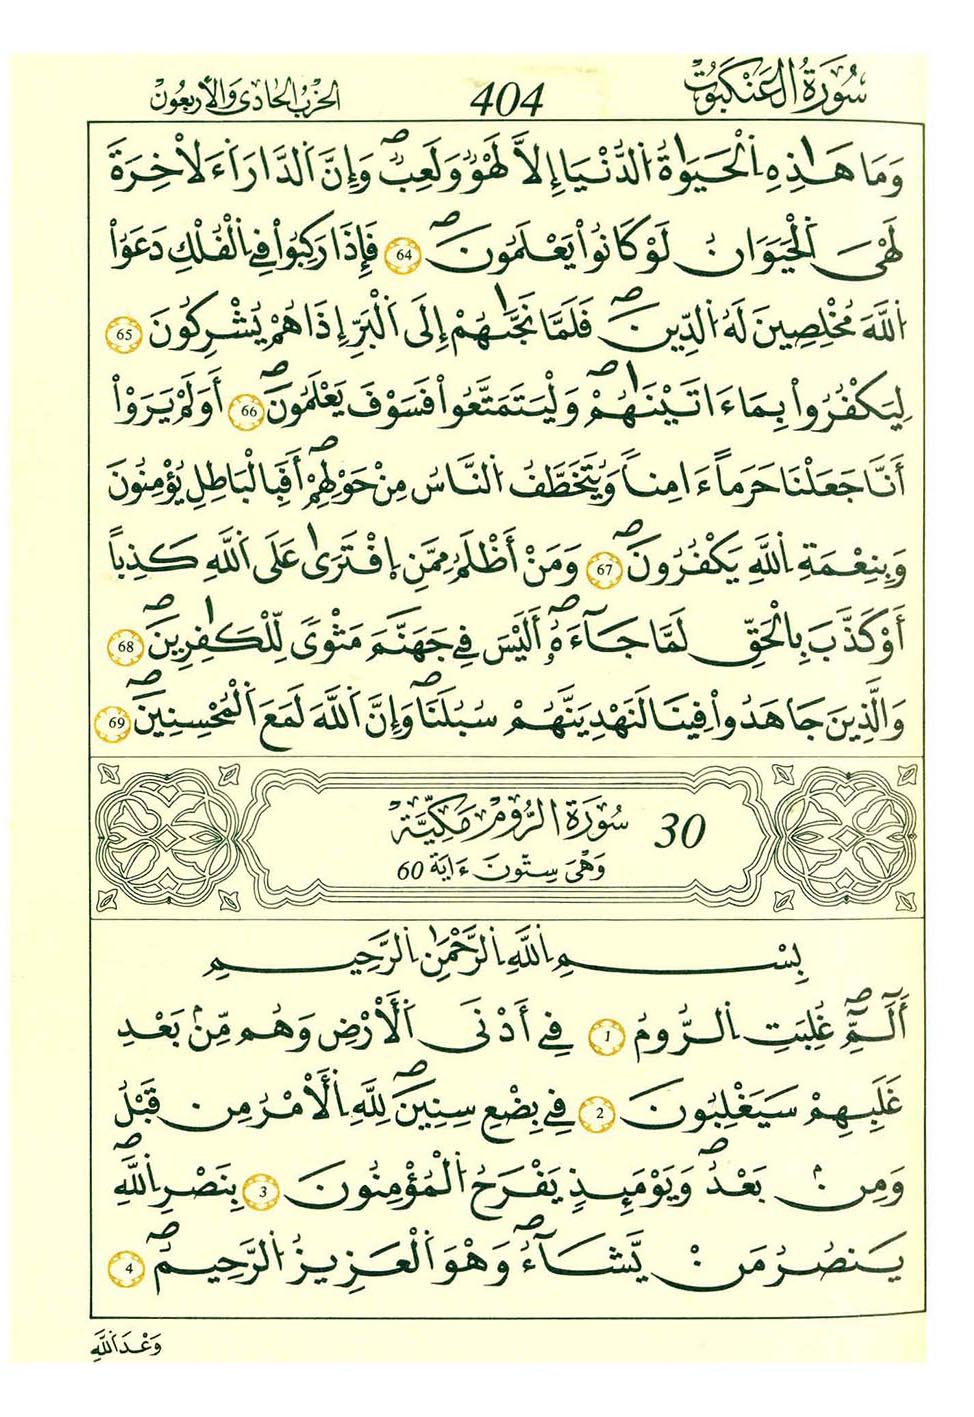 سُورَةُ الْعَنكَبُوتِ 404 الحِزْبُ الحَادِي وَالأَرْبَعُونَ
وَمَا هَٰذِهِ اِلْحَيَوٰةُ اُلدُّنْيَا إِلَّا لَهْوٌ وَلَعِبٌۖ وَإِنَّ اَلدَّارَ اَءَلَاخِرَةَ
لَهْيَ اَلْحَيَوَانُ لَوْ كَانُواْ يَعْلَمُونَۖ 64 فَإِذَا رَكِبُواْ فِي اِلْفُلْكِ دَعَوُاْ
اُللَّهَ مُخْلِصِينَ لَهُ اُلدِّينَۖ فَلَمَّا نَجَّىٰهُمْ إِلَى اَلْبَرِّ إِذَا هُمْ يُشْرِكُونَ 65
لِيَكْفُرُواْ بِمَا ءَاتَيْنَٰهُمْۖ وَلْيَتَمَتَّعُواْ فَسَوْفَ يَعْلَمُونَۖ 66 أَوَلَمْ يَرَوْاْ
أَنَّا جَعَلْنَا حَرَماً ءَامِناً وَيُتَخَطَّفُ اُلنَّاسُ مِنْ حَوْلِهِمْۖ أَفَبِالْبَاطِلِ يُؤْمِنُونَ
وَبِنِعْمَةِ اِللَّهِ يَكْفُرُونَۖ 67 وَمَنْ أَظْلَمُ مِمَّنِ اِفْتَرَىٰ عَلَى اَللَّهِ كَذِباً
أَوْ كَذَّبَ بِالْحَقِّ لَمَّا جَآءَهُۥۖ أَلَيْسَ فِي جَهَنَّمَ مَثْوىً لِّلْكَٰفِرِينَۖ 68
وَالَّذِينَ جَاهَدُواْ فِينَا لَنَهْدِيَنَّهُمْ سُبُلَنَاۖ وَإِنَّ اَللَّهَ لَمَعَ اَلْمُحْسِنِينَۖ 69
30 سُورَةُ الرُّومِ مَكِّيَّة
وَهْيَ سِتُّونَ ءَايَة 60
بِسْمِ اِللَّهِ اِلرَّحْمَٰنِ اِلرَّحِيمِ
أَلَٓمِّٓۖ غُلِبَتِ اِلرُّومُ 1 فِي أَدْنَى اَلْأَرْضِ وَهُم مِّنۢ بَعْدِ
غَلَبِهِمْ سَيَغْلِبُونَ 2 فِي بِضْعِ سِنِينَۖ لِلَّهِ اِلْأَمْرُ مِن قَبْلُ
وَمِنۢ بَعْدُۖ وَيَوْمَئِذٍ يَفْرَحُ اُلْمُؤْمِنُونَ 3 بِنَصْرِ اِللَّهِۖ
يَنصُرُ مَنْ يَّشَآءُۖ وَهْوَ اَلْعَزِيزُ اُلرَّحِيمُۖ 4
وَعْدَ اَللَّهِ